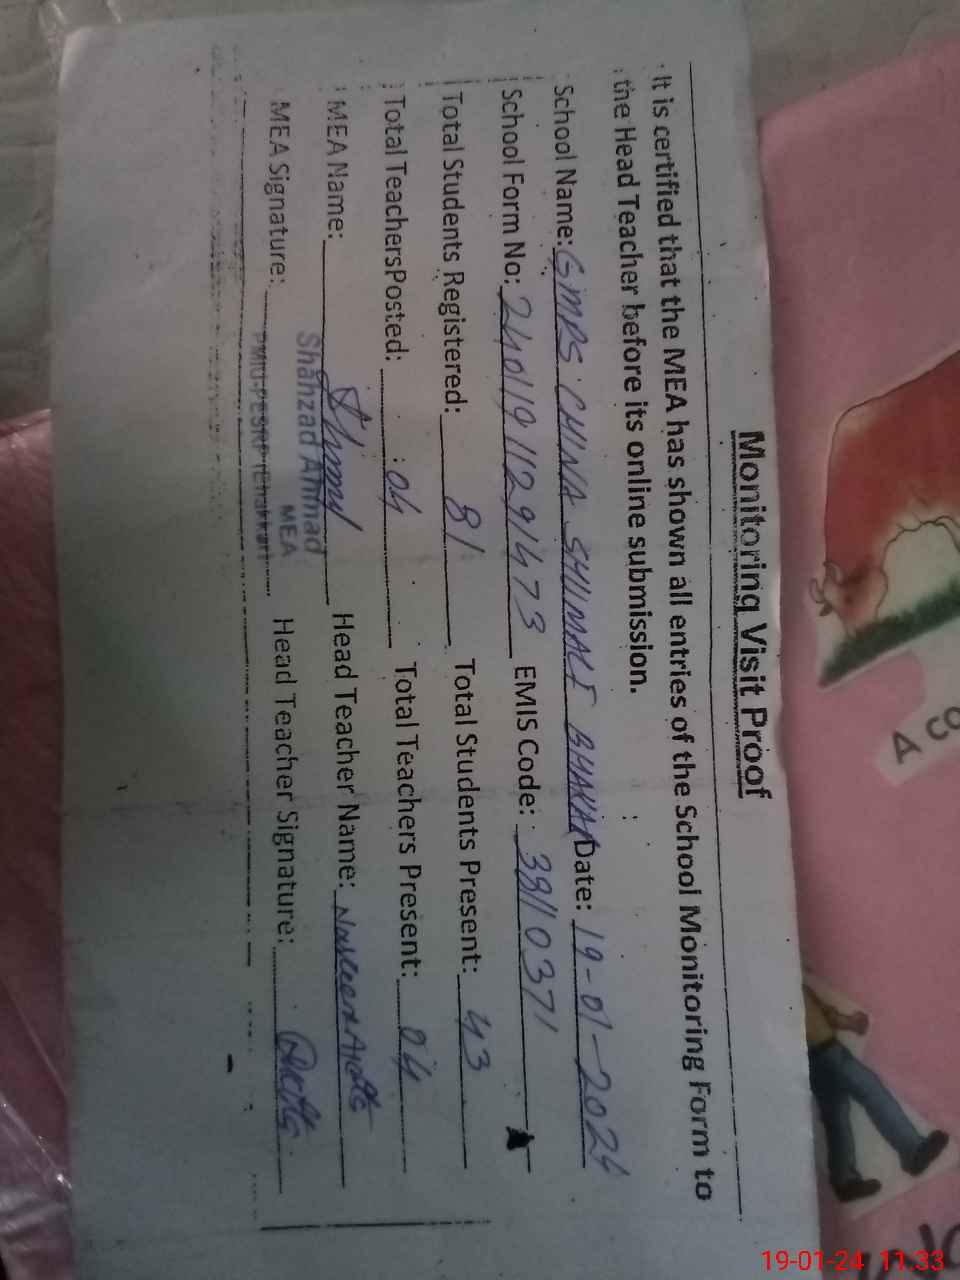 Monitoring Visit Proof
It is certified that the MEA has shown all entries of the School Monitoring Form to
the Head Teacher before its online submission.
School Name: GMPS CHINA SHUMALI Date: 19-01-2024
School Form No: 24011911291473 EMIS Code: 38110371
Total Students Registered: 81 Total Students Present: 43
Total TeachersPosted: 04 Total Teachers Present: 04
MEA Name: Head Teacher Name:
Shahzad Ahmad
MEA
MEA Signature: Head Teacher Signature:
A CO
19-01-24 11:33